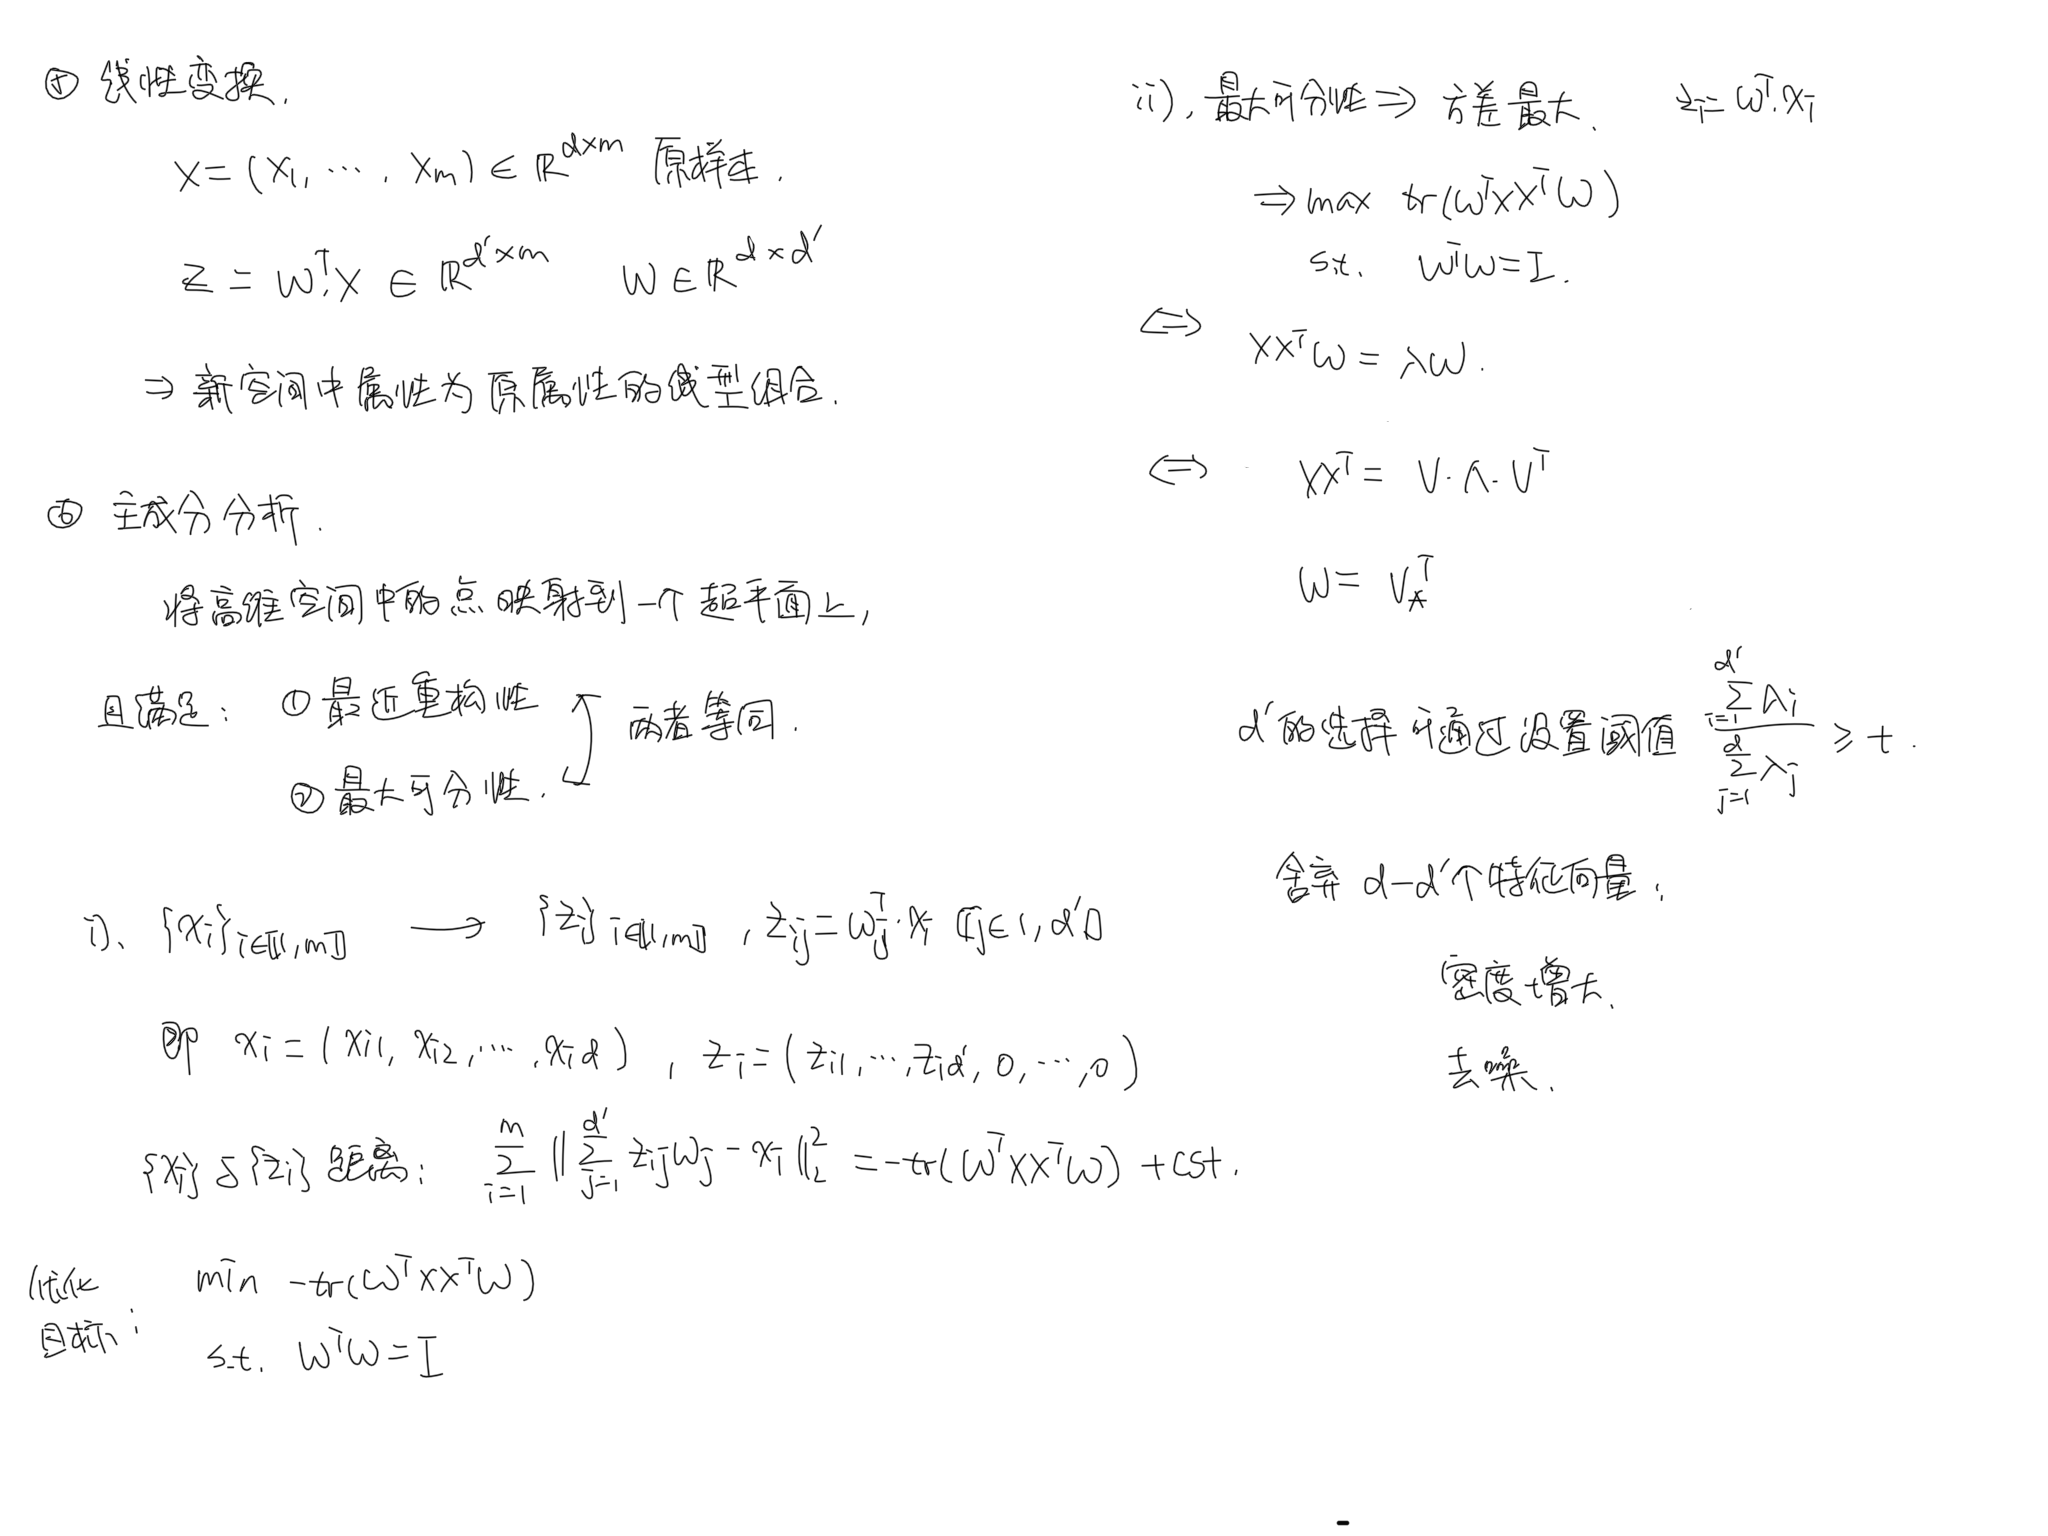 ⑤ 线性变换.
X=(x₁, ⋯, xₘ) ∈ ℝ^{d×m} 原样本.
Z = Wᵀ·X ∈ ℝ^{d'×m} W∈ℝ^{d×d'}
⇒ 新空间中属性为原属性的线型组合.
⑥ 主成分分析.
将高维空间中的点映射到一个超平面上,
且满足: ① 最近重构性
两者等同.
② 最大可分性.
i)、{xᵢ}_{i∈⟦1,m⟧} ⟶ {zᵢ}_{i∈⟦1,m⟧} , z_{ij}=w_j^T·xᵢ ⟦j∈1,d'⟧
即 xᵢ=(x_{i1}, x_{i2}, ⋯, x_{id}) , zᵢ=(z_{i1}, ⋯, z_{id'}, 0, ⋯, 0)
{xᵢ}与{zᵢ}距离: \sum_{i=1}^{m} ||\sum_{j=1}^{d'} z_{ij}w_j - xᵢ||_2^2 = -tr(WᵀXXᵀW) + cst.
优化目标: min -tr(WᵀXXᵀW)
s.t. WᵀW=I
ii), 最大可分性⇒ 方差最大. zᵢ=Wᵀ·xᵢ
⇒ max tr(WᵀXXᵀW)
s.t. WᵀW=I.
⇔ XXᵀW = λW.
⇔ XXᵀ = V·Λ·Vᵀ
W= V_*^T
d'的选择可通过设置阈值 \frac{\sum_{i=1}^{d'} λᵢ}{\sum_{j=1}^{d} λ_j} ⩾ t.
舍弃 d-d'个特征向量:
密度增大.
去噪.